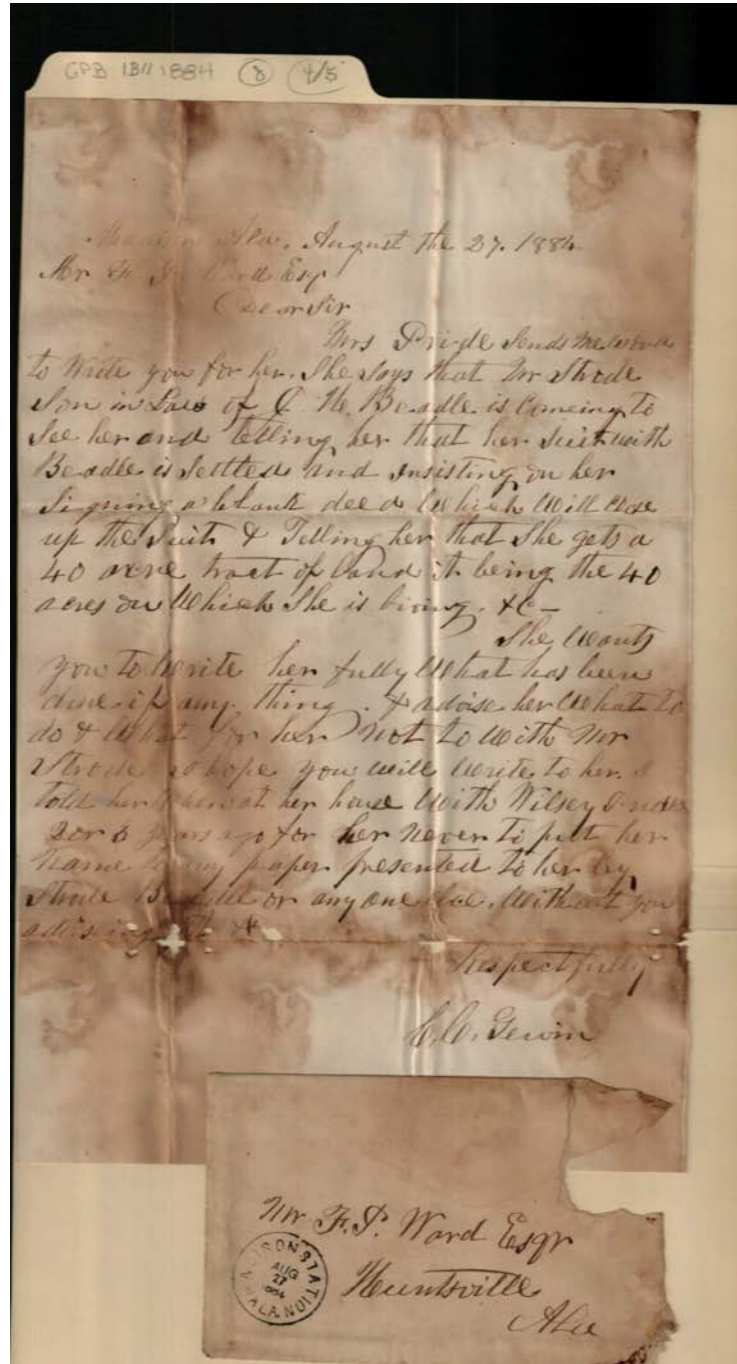 GPB 1B11 1884 (8) (4/5)
Ala. August the 27. 1884
Mr F. P. Ward Esqr
Dear Sir
Mrs Pride Sends me word
to Write you for her. She Says that Mr Strode
Son in Law of C. H. Beadle is Comeing to
See her and telling her that her Suit with
Beadle is Settled and insisting on her
Signing a blank deed Which Will Close
up the Suit & Telling her that She gets a
40 acre tract of Land it being the 40
acres on Which She is living. &C —
She Wants
you to Write her fully What has been
done if any thing. & advise her What to
do & What for her not to With Mr
Strode hope you will Write to her. I
told her at her house With Wilsey
2 or 3 years ago for her never to put her
Name to any paper presented to her by
Strode Beadle or any one else. Without you
advising
Respectfully
C. C. Gewin
Mr F. P. Ward Esqr
MADISON STATION
AUG
27
1884
ALA
Huntsville
Ala